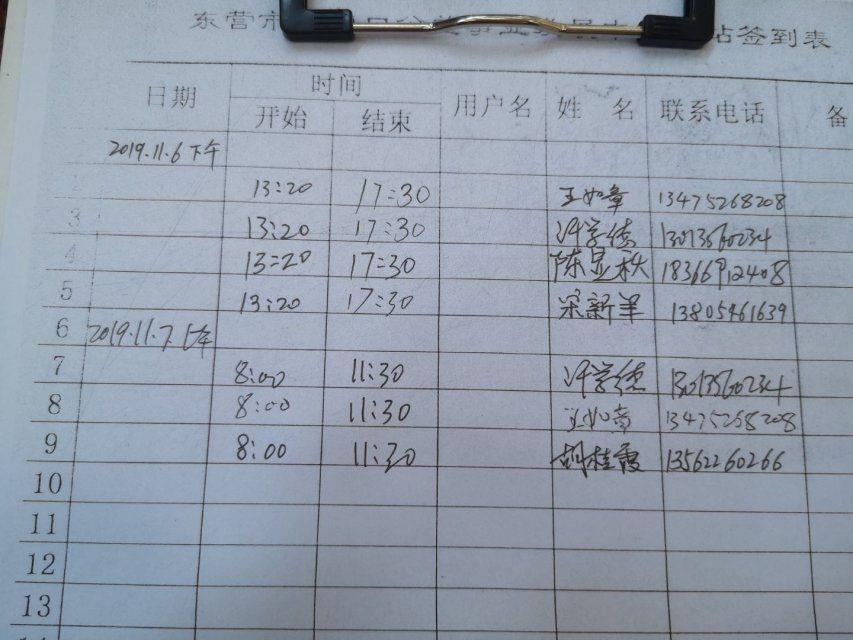 东营市
站签到表
日期 时间 用户名 姓 名 联系电话 备
开始 结束
2019.11.6下午
13:20 17:30 王如章 13475268208
3 13:20 17:30 许学德 13013560234
4 13:20 17:30 陈显秋 18366912408
5 13:20 17:30 宋新军 13805461639
6 2019.11.7上午
7 8:00 11:30 许学德 13013560234
8 8:00 11:30 王如章 13475268208
9 8:00 11:30 胡桂霞 13562260266
10
11
12
13